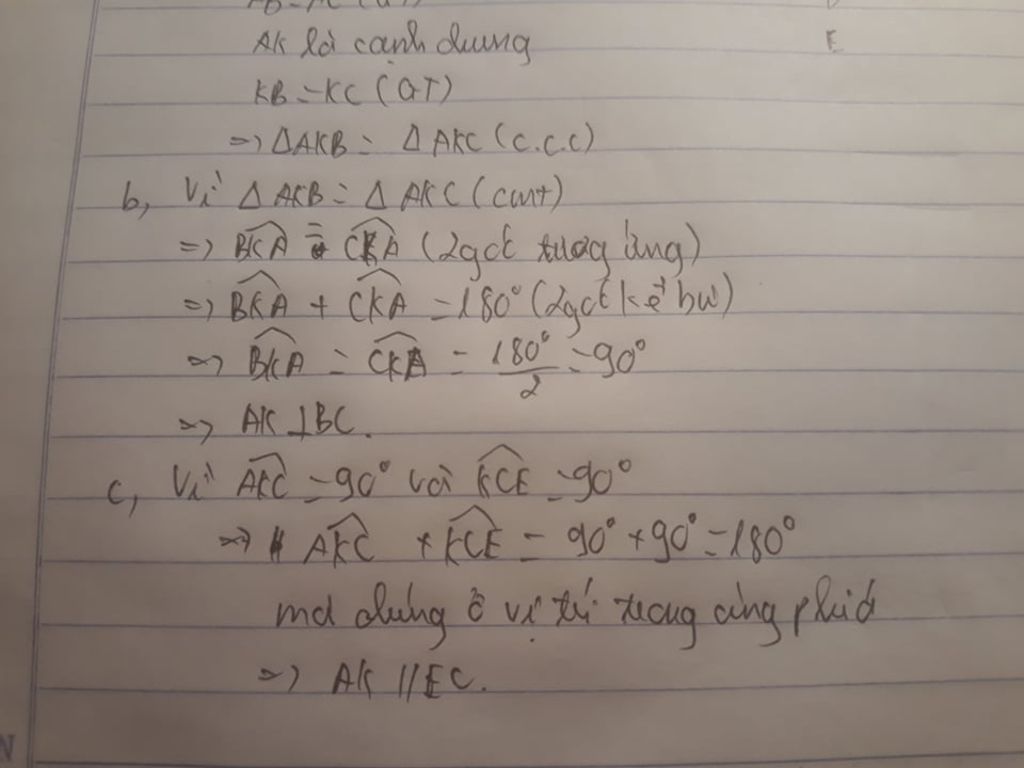 AK là cạnh chung
E
KB = KC (GT)
=> ΔAKB = ΔAKC (c.c.c)
b, Vì ΔAKB = ΔAKC (cmt)
=> \widehat{BKA} = \widehat{CKA} (2góc tương ứng)
=> \widehat{BKA} + \widehat{CKA} = 180° (2góc kề bù)
=> \widehat{BKA} = \widehat{CKA} = \frac{180°}{2} = 90°
=> AK ⊥ BC.
c, Vì \widehat{AKC} = 90° và \widehat{KCE} = 90°
=> \widehat{AKC} + \widehat{KCE} = 90° + 90° = 180°
mà chúng ở vị trí trong cùng phía
=> AK // EC.